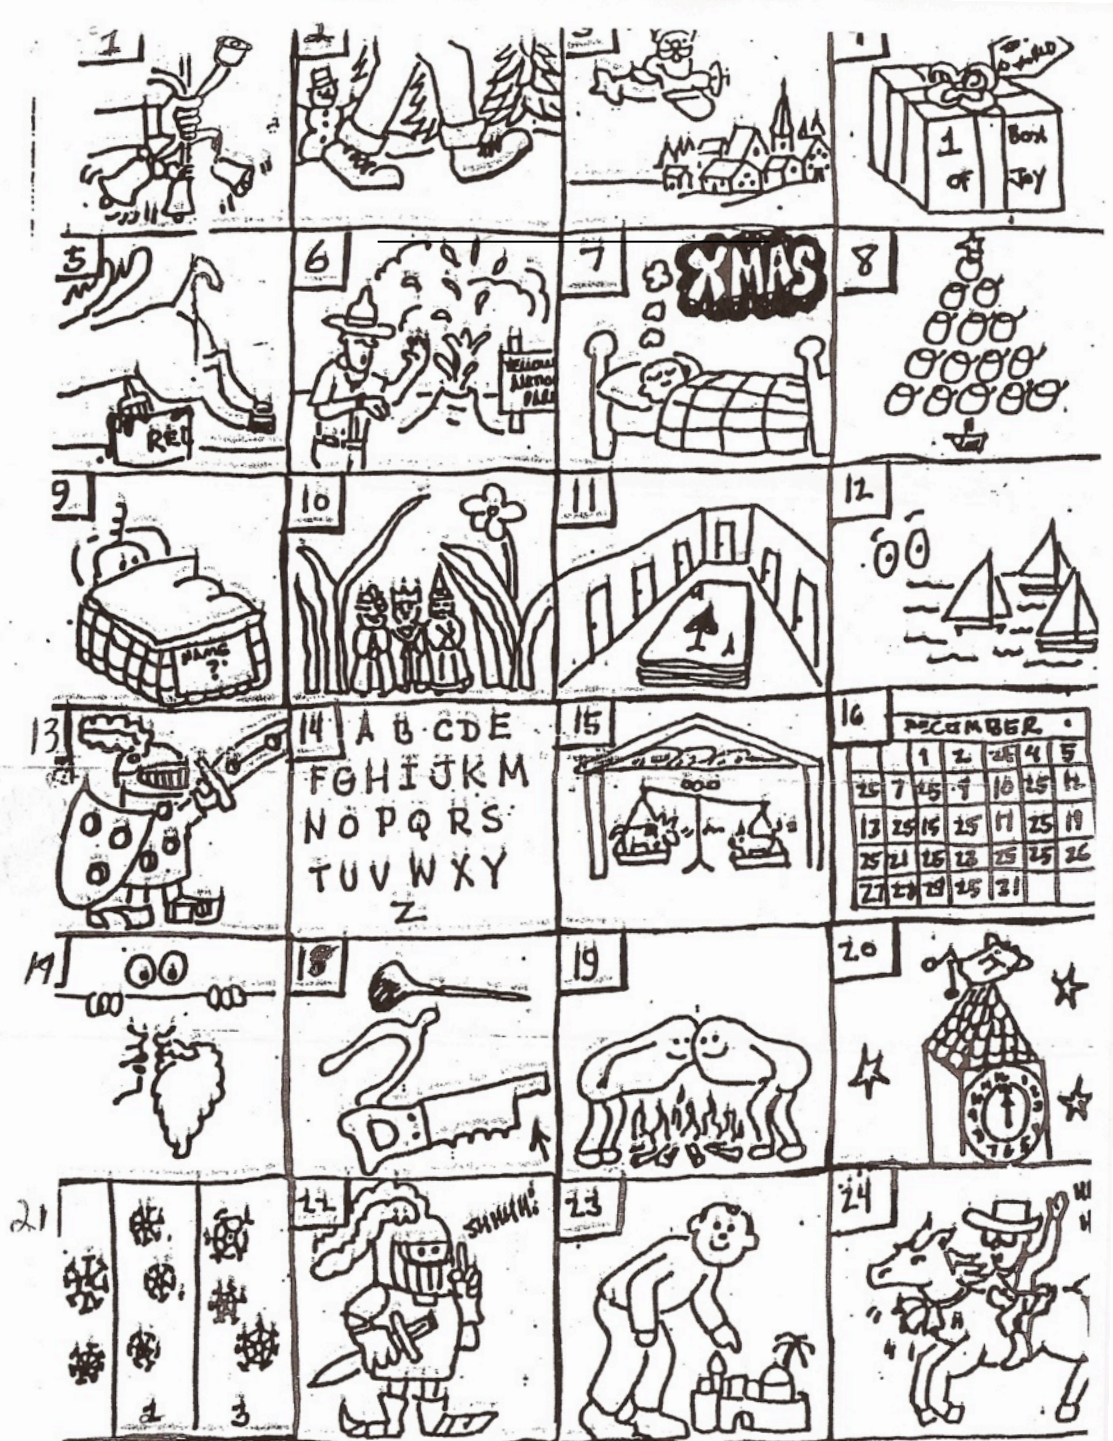 1
2
3
4
TO WORLD
1
OF
BOX
JOY
5
RED
6
7
XMAS
8
9
NAME
?
10
11
1
12
13
14
A B C D E
F G H I J K M
N O P Q R S
T U V W X Y
Z
15
16
DECEMBER
1 2 25 4 5
25 7 25 9 10 25 12
13 25 15 25 17 25 19
25 21 25 23 25 25 26
27 28 29 25 31
19
18
19
20
21
2
3
22
SHHHH!
23
24